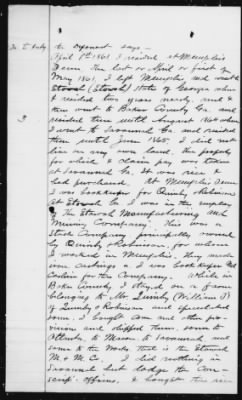 To 2 Inty the deponent says —
April 1st 1861 I resided at Memphis
Tenn. The last of April or first of
May 1861, I left Memphis and went
Etowah (Etowah) State of Georgia where
I resided two years nearly, and I
then went to Baker County Ga. and
resided there until August 1864 when
I went to Savannah Ga. and resided
there until June 1865. I did not
live on my own land, the property
for which I claim pay was taken
at Savannah Ga. It was rice I
had purchased. At Memphis, Tenn
I was bookkeeper for Quinby & Robinson
at Etowah Ga I was in the employ
The Etowah Manufacturing and
Mining Company. This was a
Stock Company principally owned
by Quinby & Robinson, for whom
I worked in Memphis. They made
iron castings & I was bookkeeper and
Cashier for the Company. While in
Baker County, I stayed on a farm
belonging to Mr Quinby (William T)
of Quinby & Robinson and speculated
some. I bought corn and other pro
vision and shipped them, some to
Atlanta, to Macon to Savannah and
some to the Works that is the Etowah
M & M. Co. I did nothing in
Savannah but dodge the Con-
script officers. I bought this rice